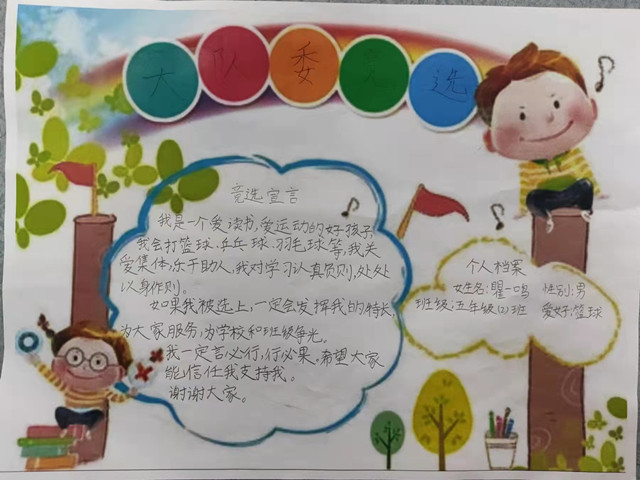 大队委竞选
竞选宣言
我是一个爱读书,爱运动的好孩子,
我会打篮球、乒乓球、羽毛球等,我关
爱集体,乐于助人,我对学习认真负则,处处
以身作则。
如果我被选上,一定会发挥我的特长,
为大家服务,为学校和班级争光。
我一定言必行,行必果。希望大家
能信任我支持我。
谢谢大家。
个人档案
女姓名:瞿一鸣 性别:男
班级:五年级(1)班 爱好:篮球